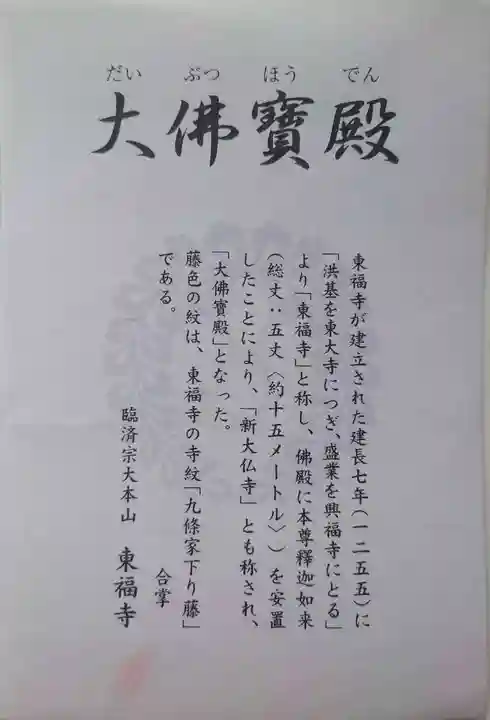 だい ぶつ ほう でん
大佛寶殿
東福寺が建立された建長七年(一二五五)に
「洪基を東大寺につぎ、盛業を興福寺にとる」
より「東福寺」と称し、佛殿に本尊釋迦如来
(総丈:五丈〈約十五メートル〉)を安置
したことにより、「新大仏寺」とも称され、
「大佛寶殿」となった。
藤色の紋は、東福寺の寺紋「九條家下り藤」
である。
合掌
臨済宗大本山 東福寺